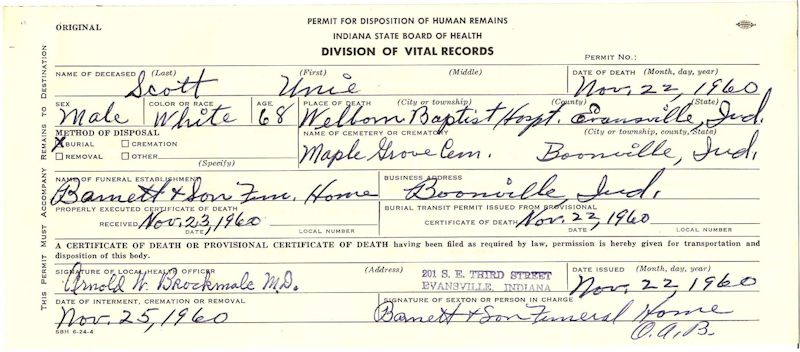 ORIGINAL
PERMIT FOR DISPOSITION OF HUMAN REMAINS
INDIANA STATE BOARD OF HEALTH
DIVISION OF VITAL RECORDS
PERMIT NO.:
THIS PERMIT MUST ACCOMPANY REMAINS TO DESTINATION
NAME OF DECEASED (Last) (First) (Middle) DATE OF DEATH (Month, day, year)
Scott Unie Nov. 22, 1960
SEX COLOR OR RACE AGE PLACE OF DEATH (City or township) (County) (State)
Male White 68 Welborn Baptist Hospt. Evansville, Ind.
METHOD OF DISPOSAL NAME OF CEMETERY OR CREMATORY (City or township, county, State)
X BURIAL CREMATION
REMOVAL OTHER Maple Grove Cem. Boonville, Ind.
(Specify)
NAME OF FUNERAL ESTABLISHMENT BUSINESS ADDRESS
Barnett & Son Fun. Home Boonville, Ind.
PROPERLY EXECUTED CERTIFICATE OF DEATH BURIAL TRANSIT PERMIT ISSUED FROM PROVISIONAL
RECEIVED Nov. 23, 1960 CERTIFICATE OF DEATH Nov. 22, 1960
DATE LOCAL NUMBER DATE LOCAL NUMBER
A CERTIFICATE OF DEATH OR PROVISIONAL CERTIFICATE OF DEATH having been filed as required by law, permission is hereby given for transportation and
disposition of this body.
SIGNATURE OF LOCAL HEALTH OFFICER (Address) DATE ISSUED (Month, day, year)
Arnold W. Brockmole M.D. 201 S. E. THIRD STREET Nov. 22, 1960
EVANSVILLE, INDIANA
DATE OF INTERMENT, CREMATION OR REMOVAL SIGNATURE OF SEXTON OR PERSON IN CHARGE
Nov. 25, 1960 Barnett & Son Funeral Home
O.A.B.
SBH 6-24-4